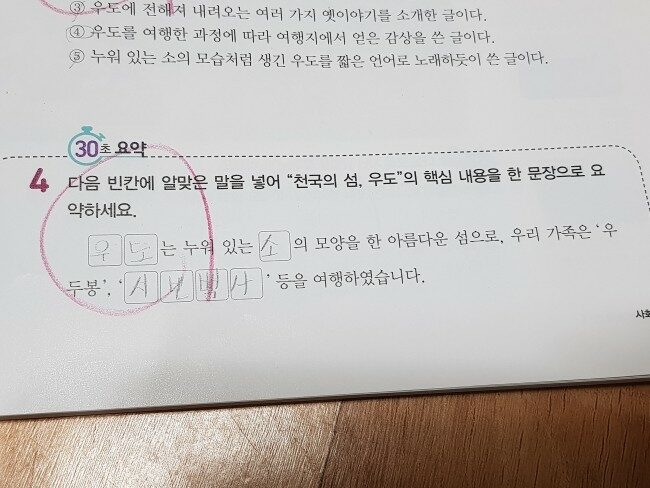 ③ 우도에 전해져 내려오는 여러 가지 옛이야기를 소개한 글이다.
④ 우도를 여행한 과정에 따라 여행지에서 얻은 감상을 쓴 글이다.
⑤ 누워 있는 소의 모습처럼 생긴 우도를 짧은 언어로 노래하듯이 쓴 글이다.
30초 요약
4 다음 빈칸에 알맞은 말을 넣어 “천국의 섬, 우도”의 핵심 내용을 한 문장으로 요
약하세요.
우도는 누워 있는 소의 모양을 한 아름다운 섬으로, 우리 가족은 ‘우
두봉’, ‘서빈백사’ 등을 여행하였습니다.
사회